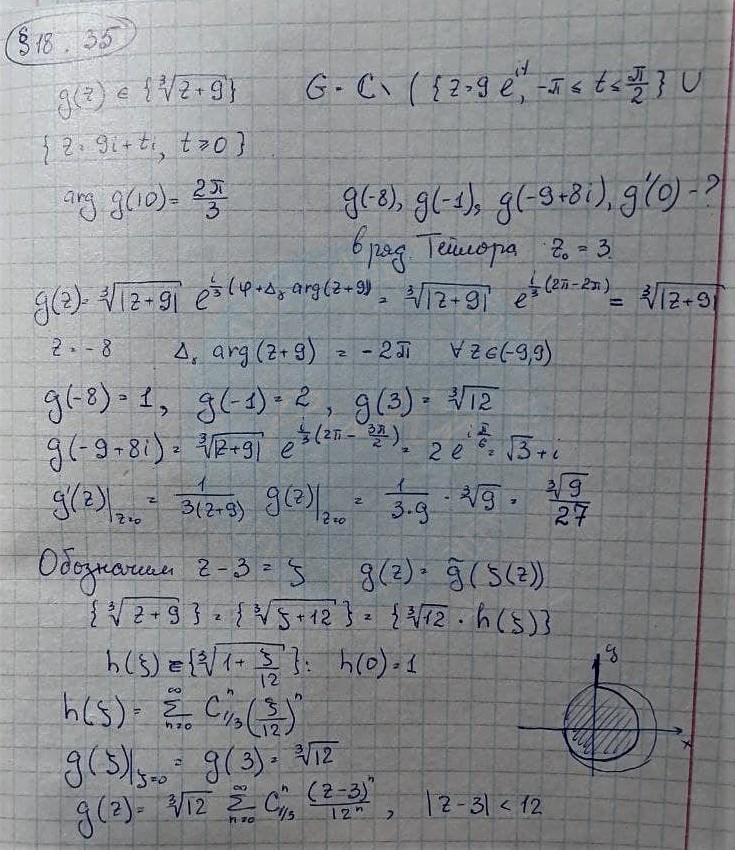 §18.35
g(z) ∈ {∛(z+9)}   G = C \ ({z=9e^{it}, -π ≤ t ≤ π/2} ∪
{z = 9i+ti, t ≥ 0}
arg g(10) = 2π/3   g(-8), g(-1), g(-9+8i), g'(0) - ?
в ряд Тейлора z₀ = 3
g(z) = ∛|z+9| e^{i/3(φ+Δ_γ arg(z+9)} = ∛|z+9| e^{i/3(2π-2π)} = ∛|z+9|
z = -8   Δ_γ arg(z+9) = -2π   ∀z∈(-9,9)
g(-8) = 1, g(-1) = 2, g(3) = ∛12
g(-9+8i) = ∛|z+9| e^{i/3(2π - 3π/2)} = 2e^{iπ/6} = √3+i
g'(z)|_{z=0} = 1/(3(z+9)) g(z)|_{z=0} = 1/(3·9) · ∛9 = ∛9/27
Обозначим z-3 = ζ   g(z) = g̃(ζ(z))
{∛(z+9)} = {∛(ζ+12)} = {∛12 · h(ζ)}
h(ζ) ∈ {∛(1+ζ/12)}: h(0) = 1
y
h(ζ) = Σ_{n=0}^{∞} C_{1/3}^n (ζ/12)^n
x
g(ζ)|_{ζ=0} = g(3) = ∛12
g(z) = ∛12 Σ_{n=0}^{∞} C_{1/3}^n (z-3)^n/12^n, |z-3| < 12